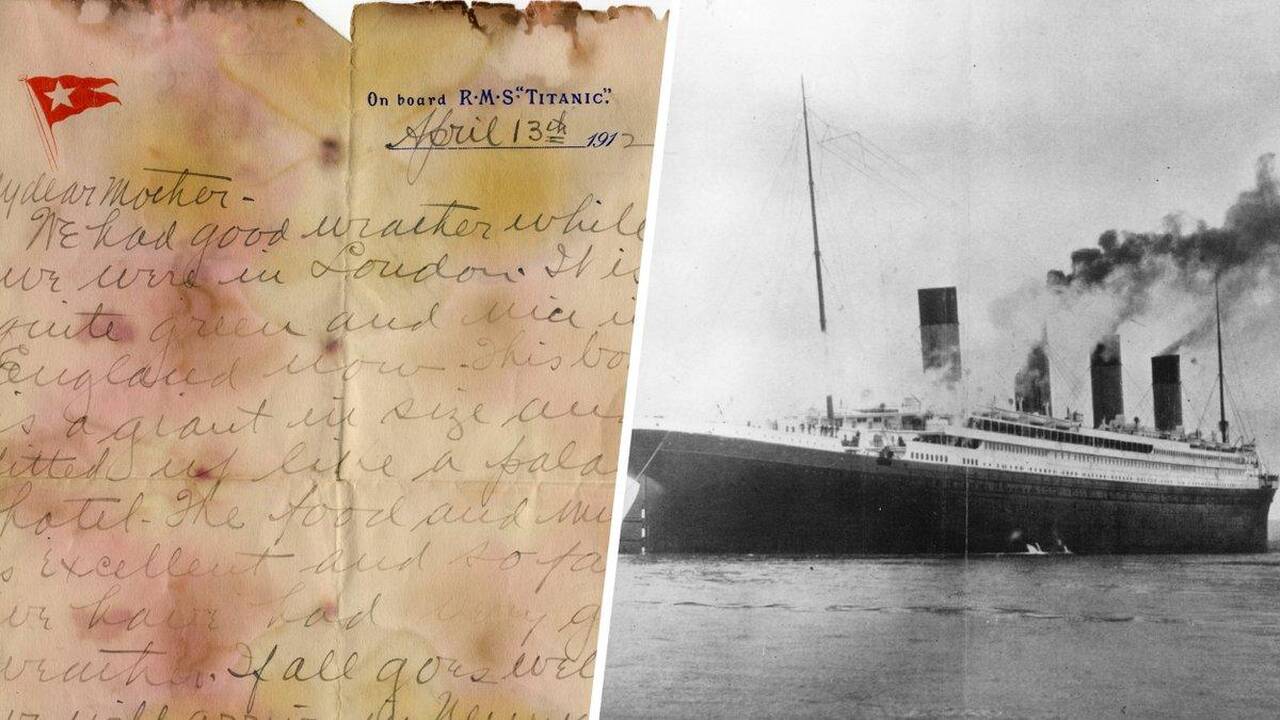 On board R·M·S "TITANIC".
April 13th 1912
My dear Mother-
We had good weather while
we were in London. It is
quite green and nice i
England now. This bo
is a giant in size an
fitted up like a pala
hotel. The food and mu
s excellent and so fa
we have had very g
weather. If all goes wel
we will arrive in